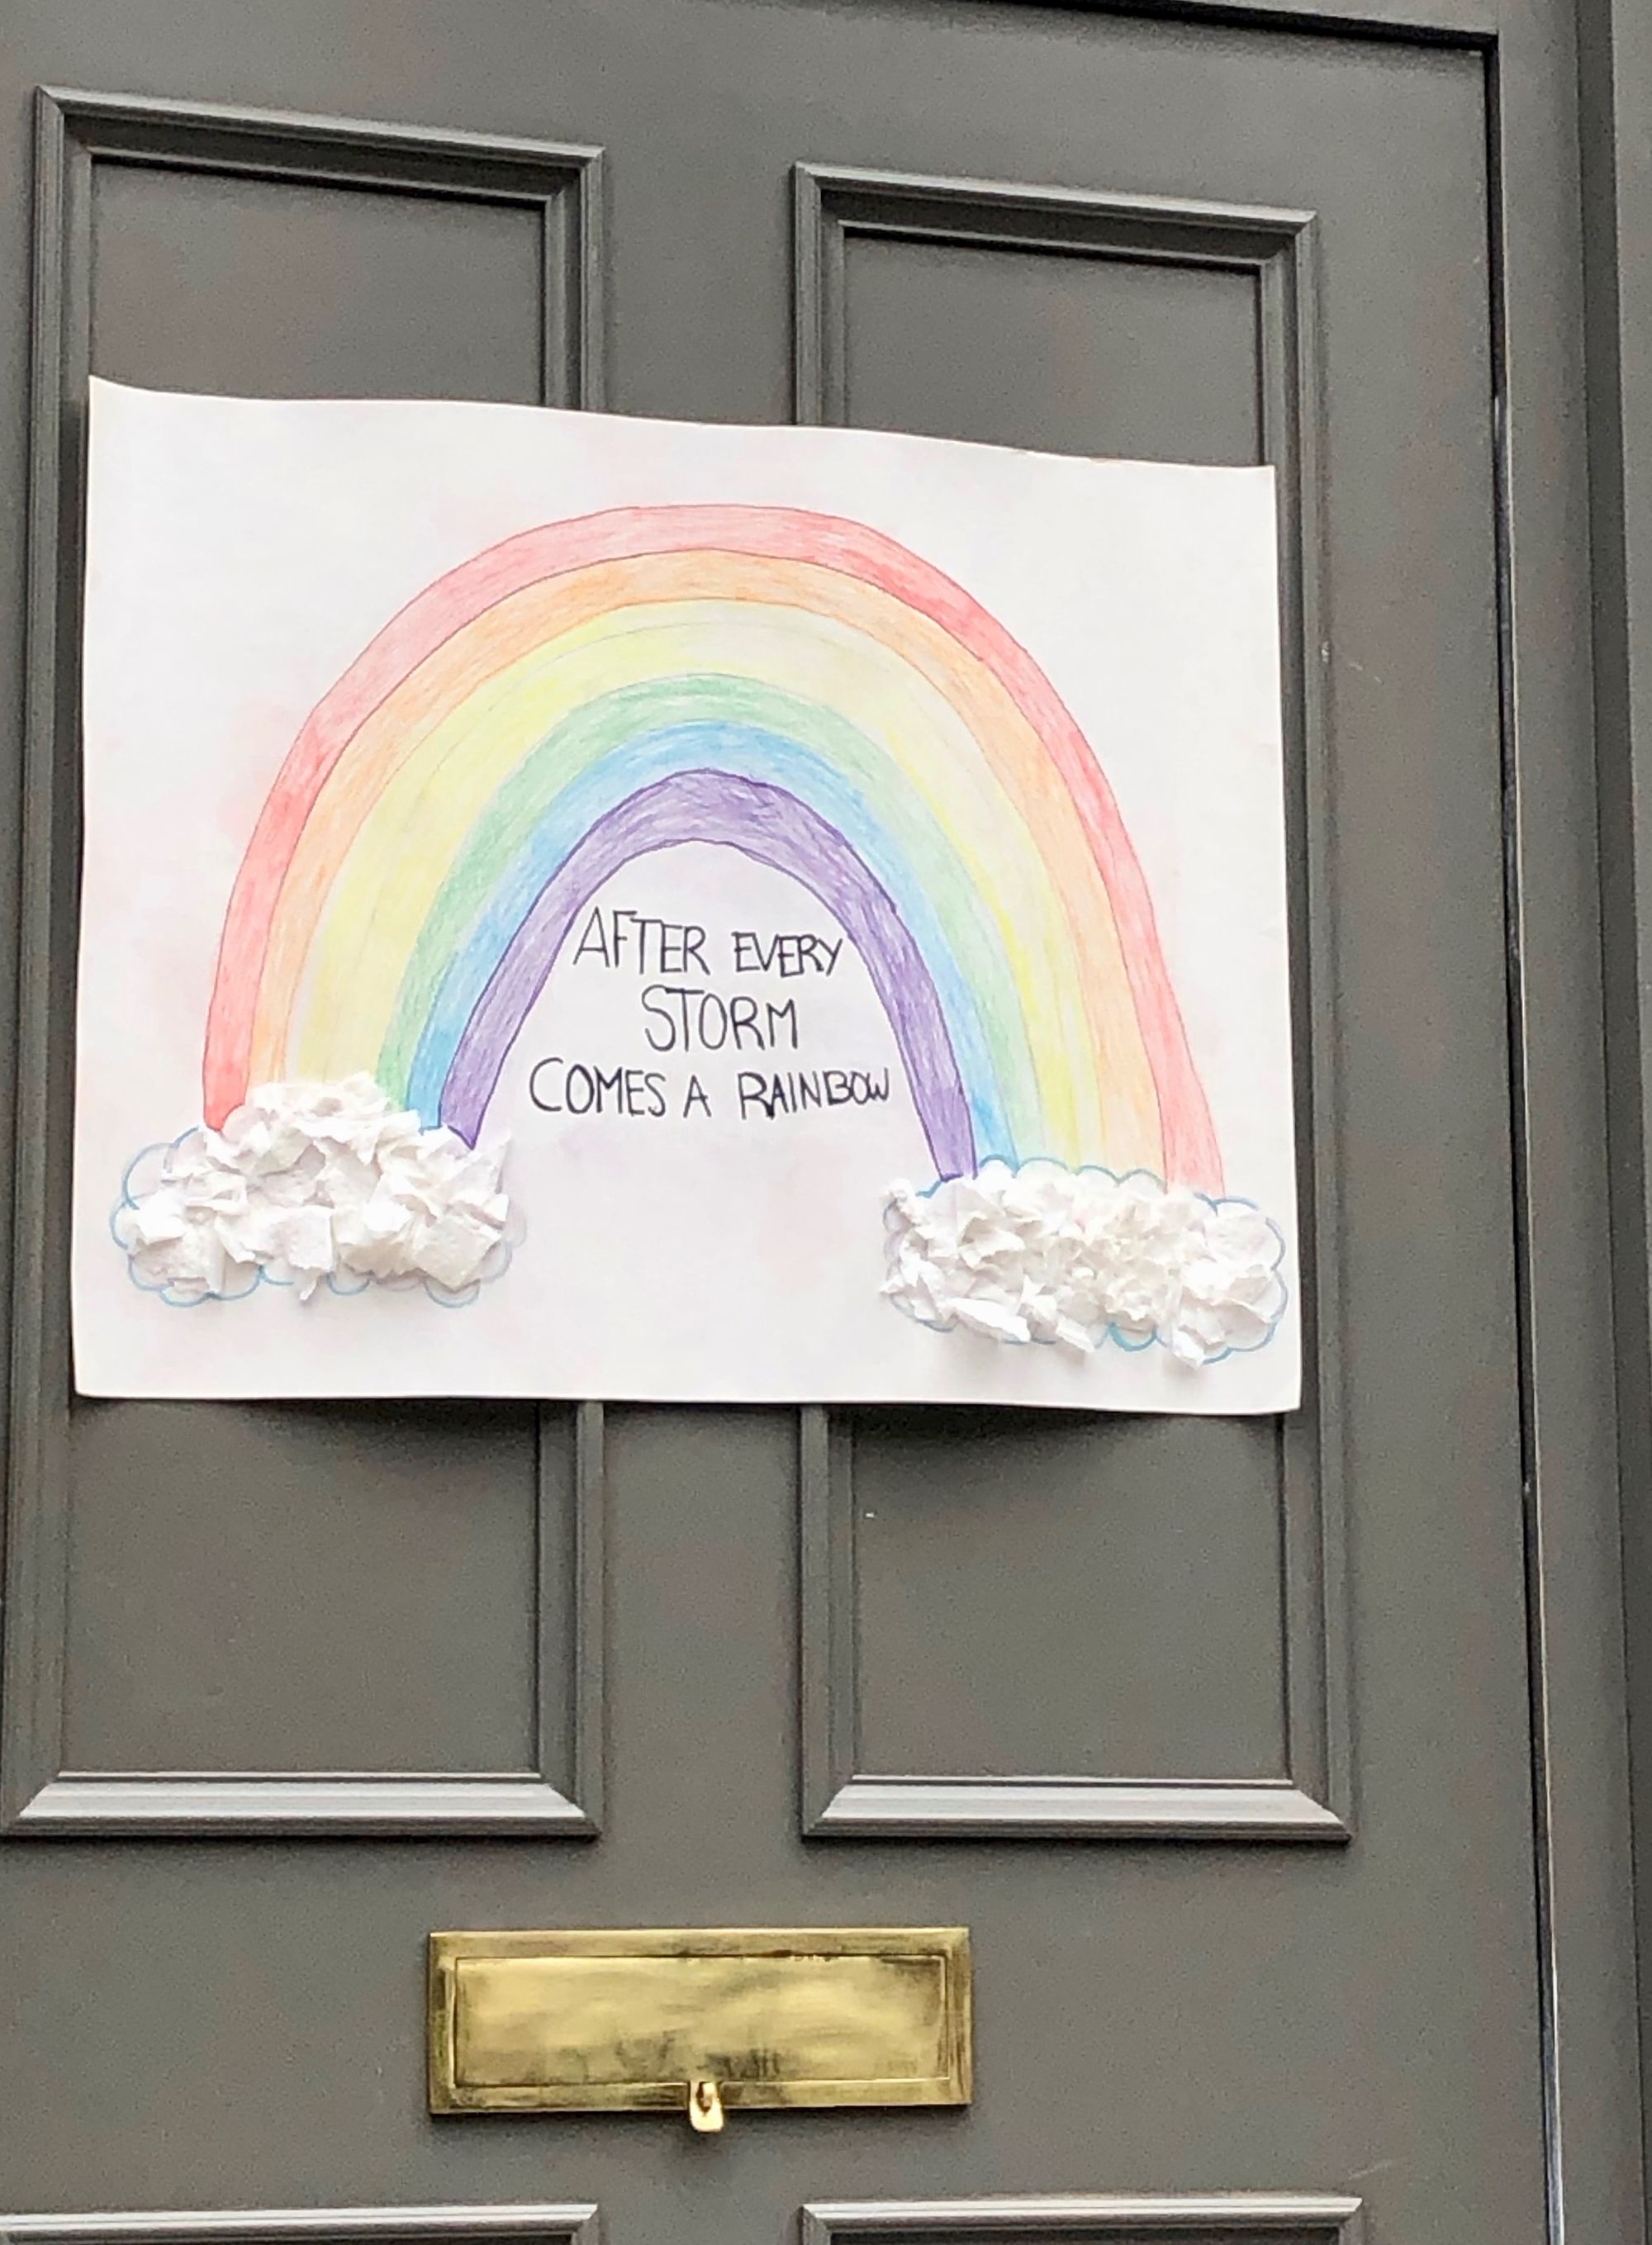 AFTER EVERY
STORM
COMES A RAINBOW